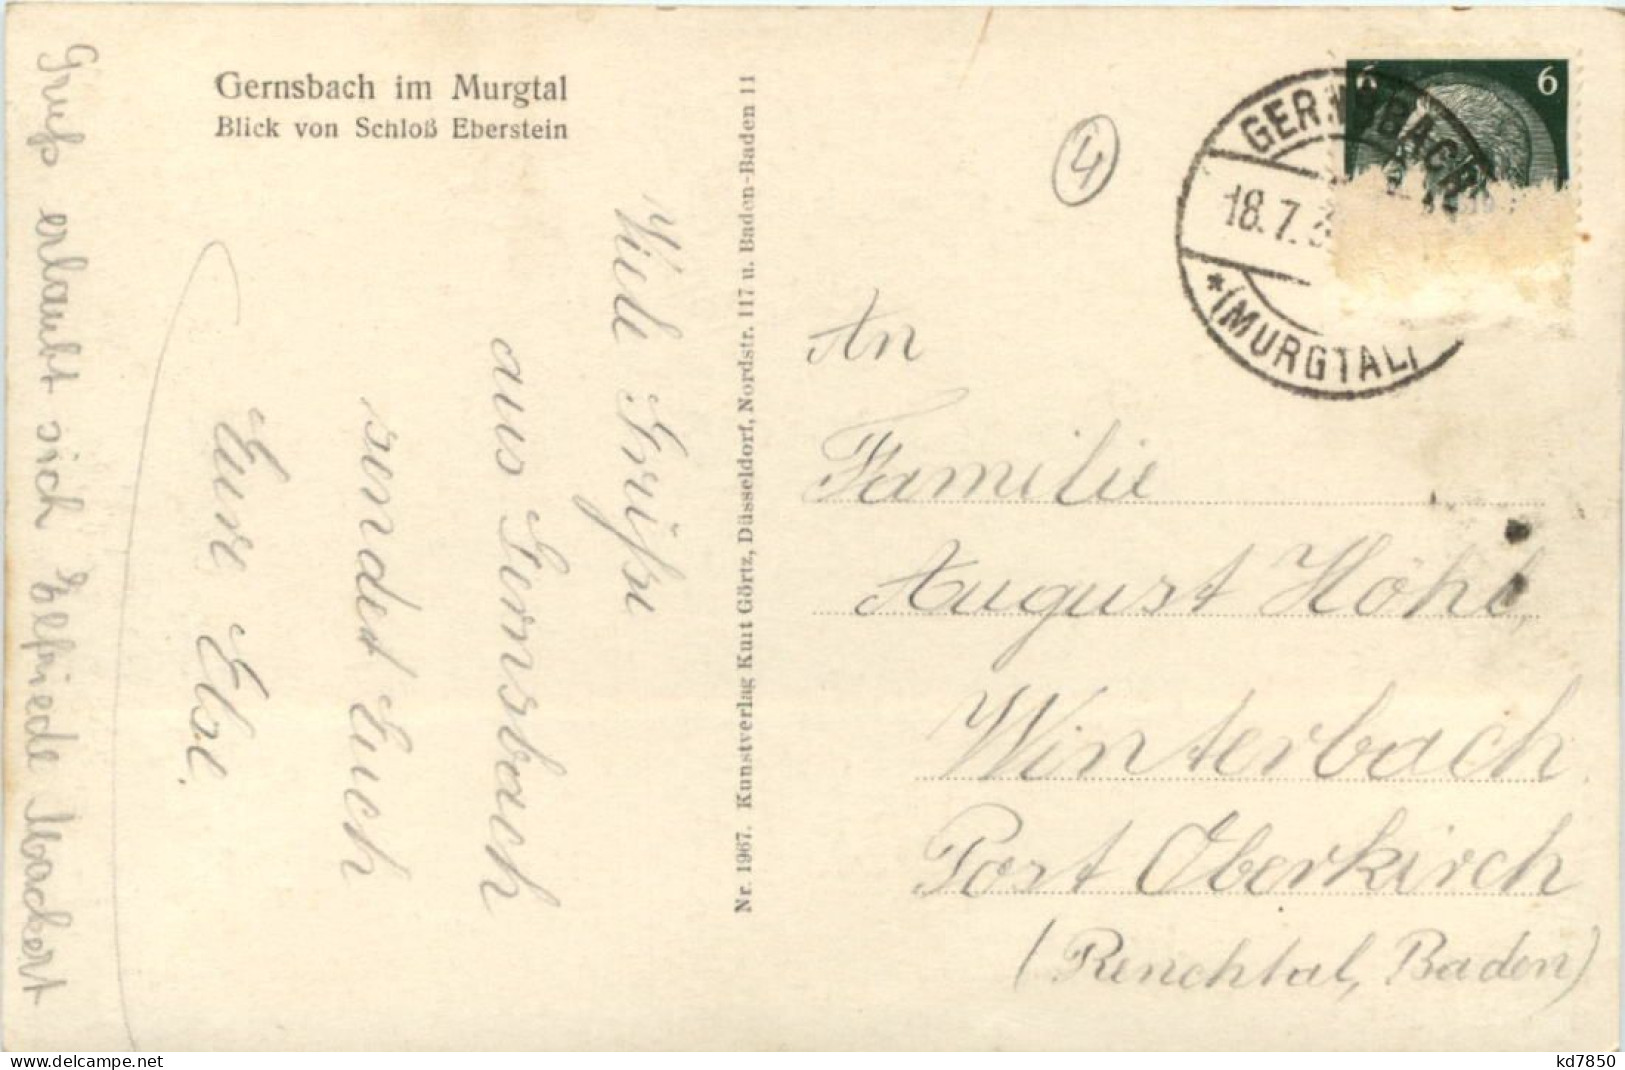 Gernsbach im Murgtal
Blick von Schloß Eberstein
Viele Grüße
aus Gernsbach
sendet Euch
Eure Else.
Gruß erlaubt sich Elfriede Mackert
Nr. 1967. Kunstverlag Kurt Görtz, Düsseldorf, Nordstr. 117 u. Baden-Baden 11
4
6 6
GERNSBACH
18.7.3
* (MURGTAL)
An
Familie
August Höhl,
Winterbach
Post Oberkirch
(Renchtal, Baden)
www.delcampe.net
kd7850